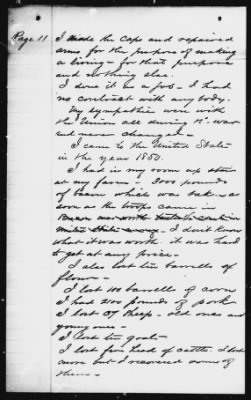 Page 11
I made the Caps and repaired
arms for the purpose of making
a living - for that purpose
and nothing else.
I done it as a job - I had
no contract with any body.
My sympathies were with
the Union all during the war
and never changed -
I came to the United States
in the year 1850.
I had in my room up stairs
at my farm - 3000 pounds
of bacon which was taken as
soon as the troops came in
I don't know
what it was worth it was hard
to get at any price -
I also lost ten barrells of
flour -
I lost 100 barrells of corn
I had 2100 pounds of pork
I lost 07 sheep - old ones and
young ones -
I lost ten goats -
I lost five head of cattle. I lost
more but I recovered some of
them -